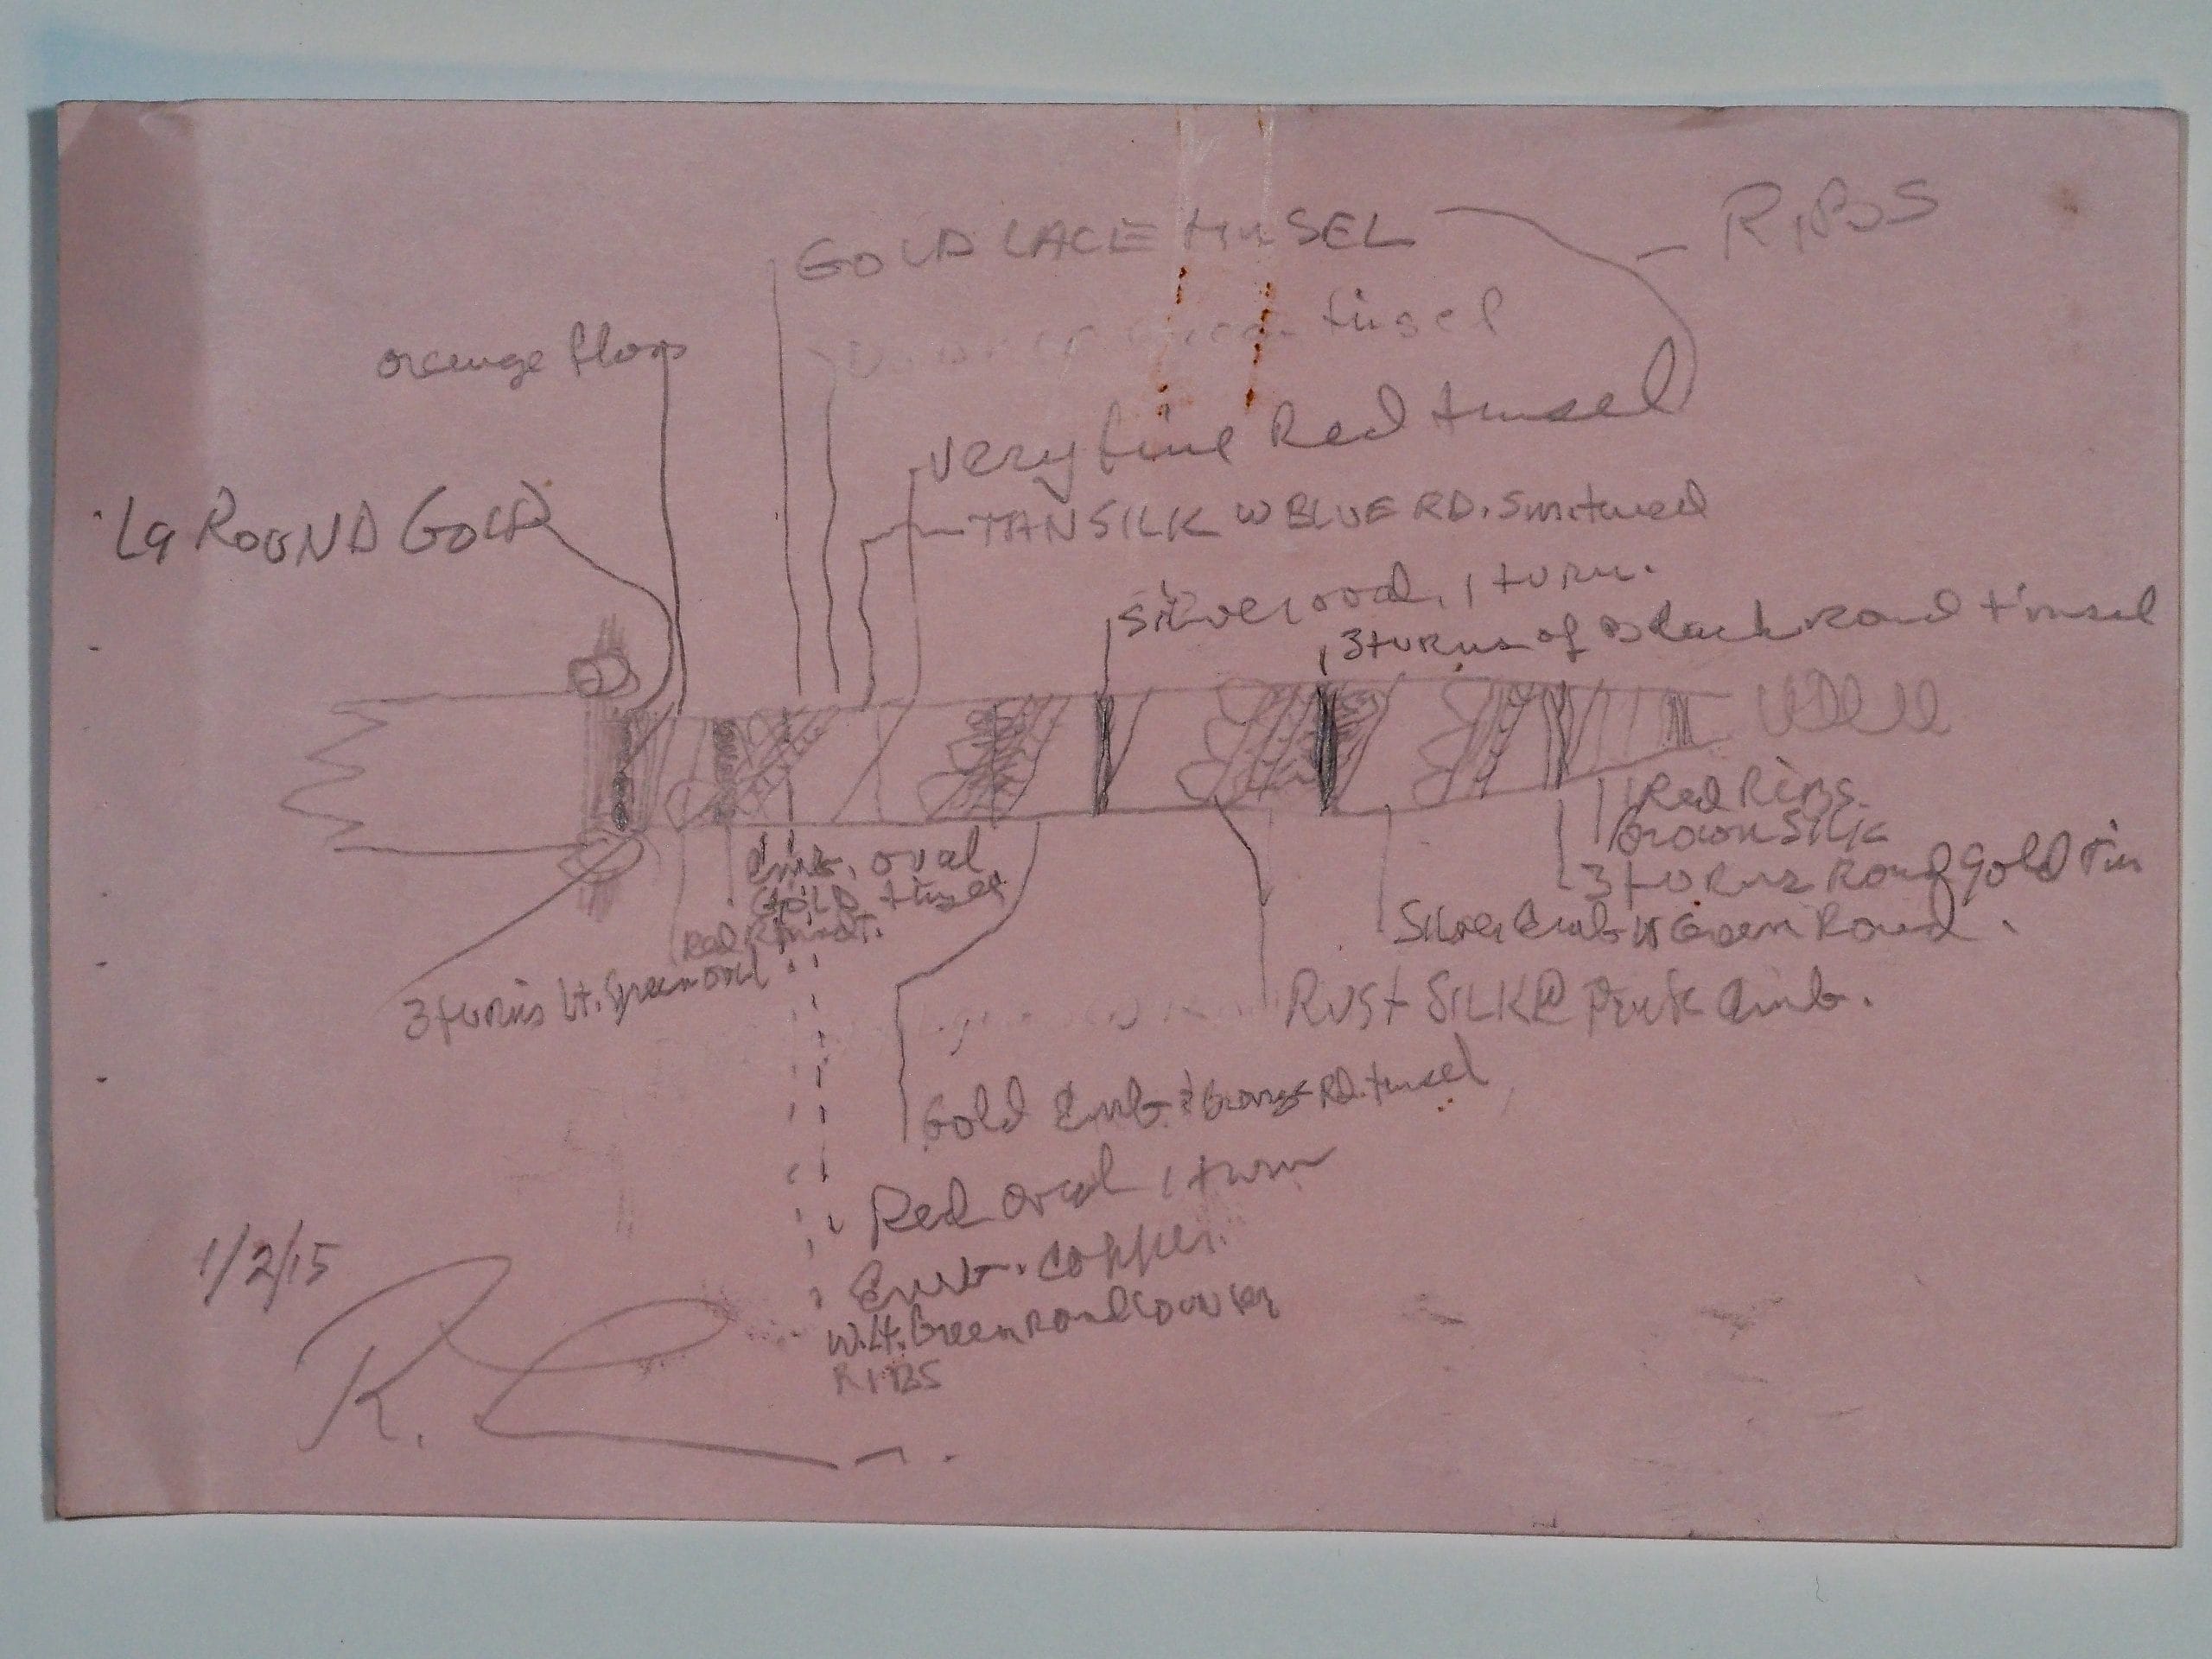 GOLD LACE tinSEL
RIBS
tinsel
orange floss
very fine Red tinsel
Lg ROUND GOLD
TAN SILK W BLUE RD.
silver oval, 1 turn.
3 turns of Black Round tinsel
Red Rims
Brown SILK
3 turns Round gold tin
Emb. oval
GOLD tinsel
Silver Emb W Green Round.
Red
3 turns Lt. green oval
RUST SILK @ Pink Emb.
Gold Emb. & Orange RD. tinsel
Red oval 1 turn
Emb. copper.
W. Lt. Green Round counter
RIBS
1/2/15
R.